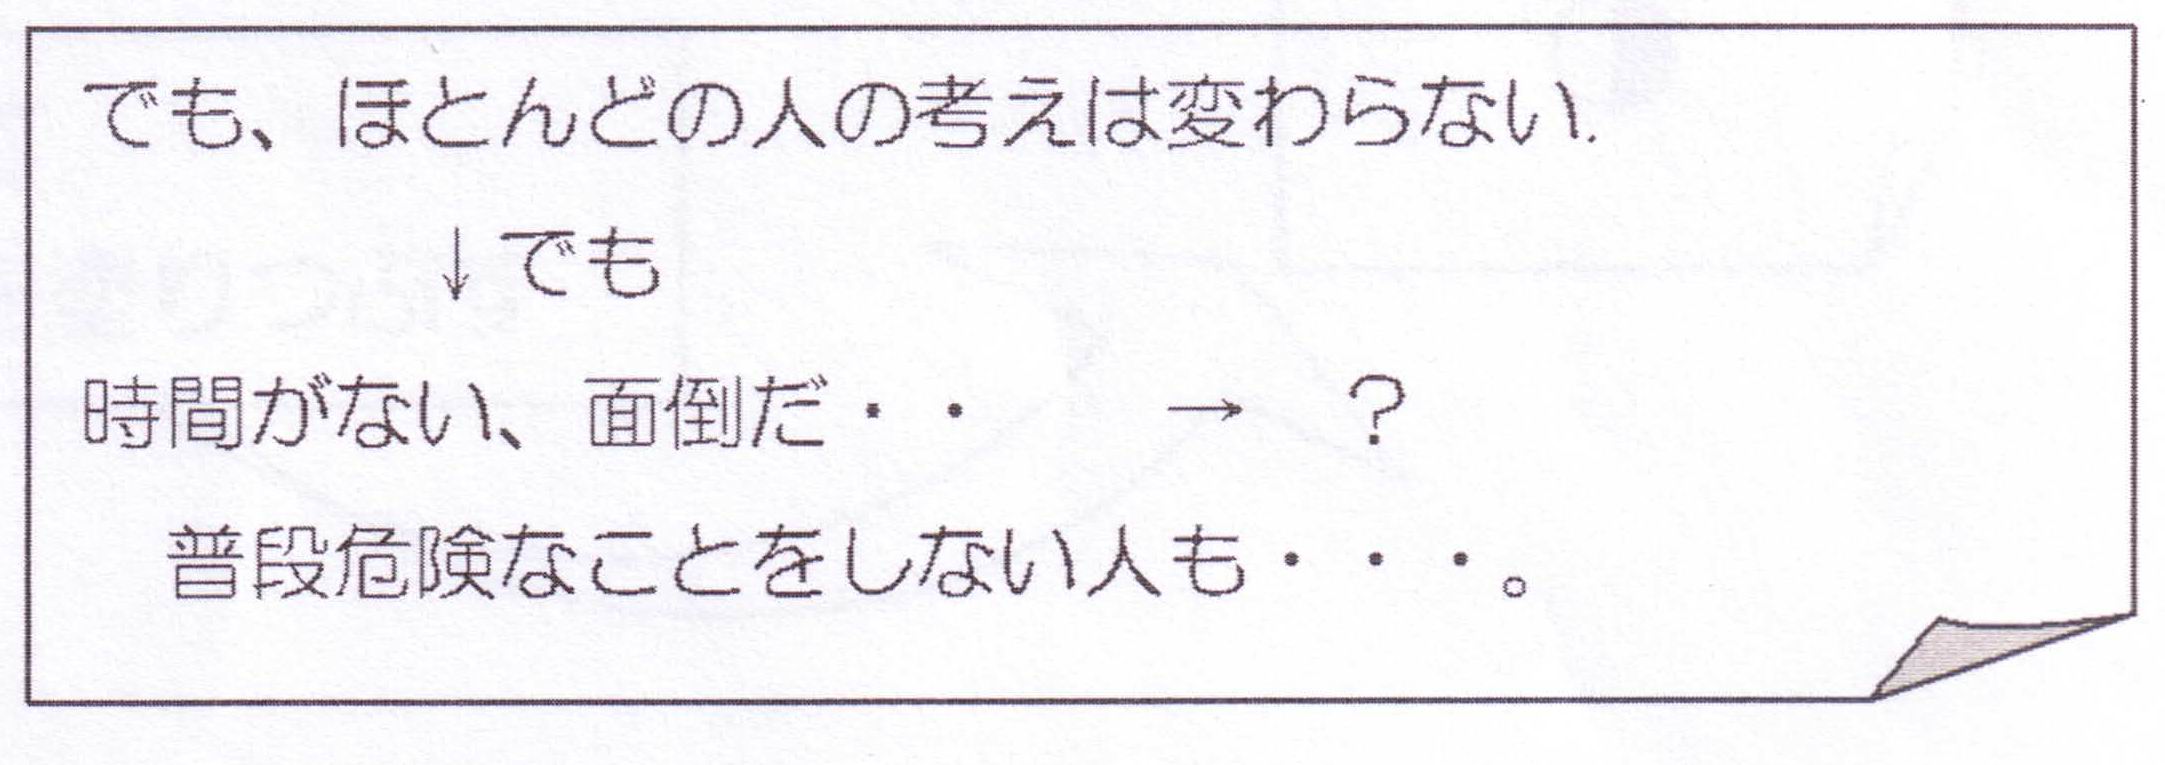 でも、ほとんどの人の考えは変わらない.
↓でも
時間がない、面倒だ・・　　→　？
普段危険なことをしない人も・・・。